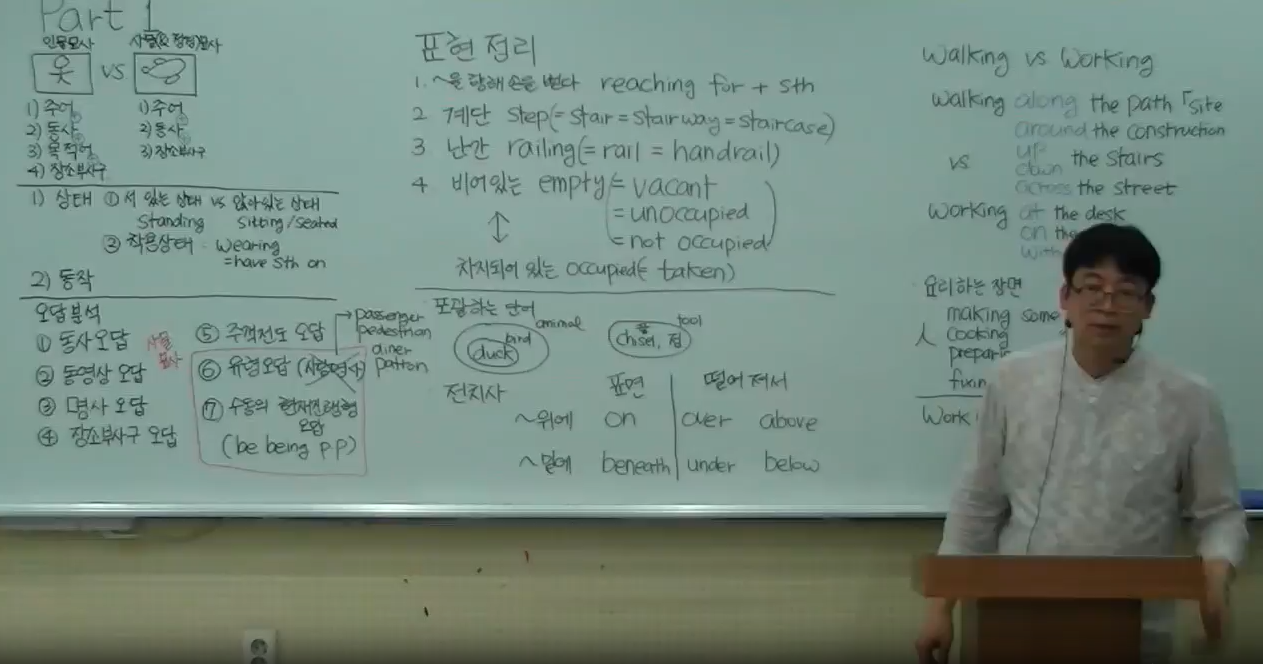 Part 1
인물묘사 vs 사물(&정경)묘사
1) 주어
2) 동사
3) 목적어
4) 장소부사구
1) 주어
2) 동사
3) 장소부사구
1) 상태 ① 서 있는 상태 vs 앉아있는 상태
Standing Sitting/Seated
② 착용상태 : Wearing
=have sth on
2) 동작
오답분석
① 동사오답
② 동명상 오답
③ 명사 오답
④ 장소부사구 오답
사물
묘사
⑤ 주객전도 오답
⑥ 유령오답 (사람명사)
⑦ 수동의 현재진행형
오답
(be being pp)
passenger
pedestrian
diner
patron
표현정리
1. ~을 향해 손을 뻗다 reaching for + sth
2 계단 step(=stair=stairway=staircase)
3 난간 railing(=rail = handrail)
4 비어있는 empty(= vacant
= unoccupied
= not occupied)
차지되어 있는 occupied(= taken)
포괄하는 단어
duck bird animal
chisel, 끌 tool
전치사 표면 떨어져서
~위에 on over above
~밑에 beneath under below
Walking vs Working
Walking along the path site
around the construction
vs up
down the stairs
across the street
Working at the desk
on the
with
요리하는 장면
making some
cooking
Work